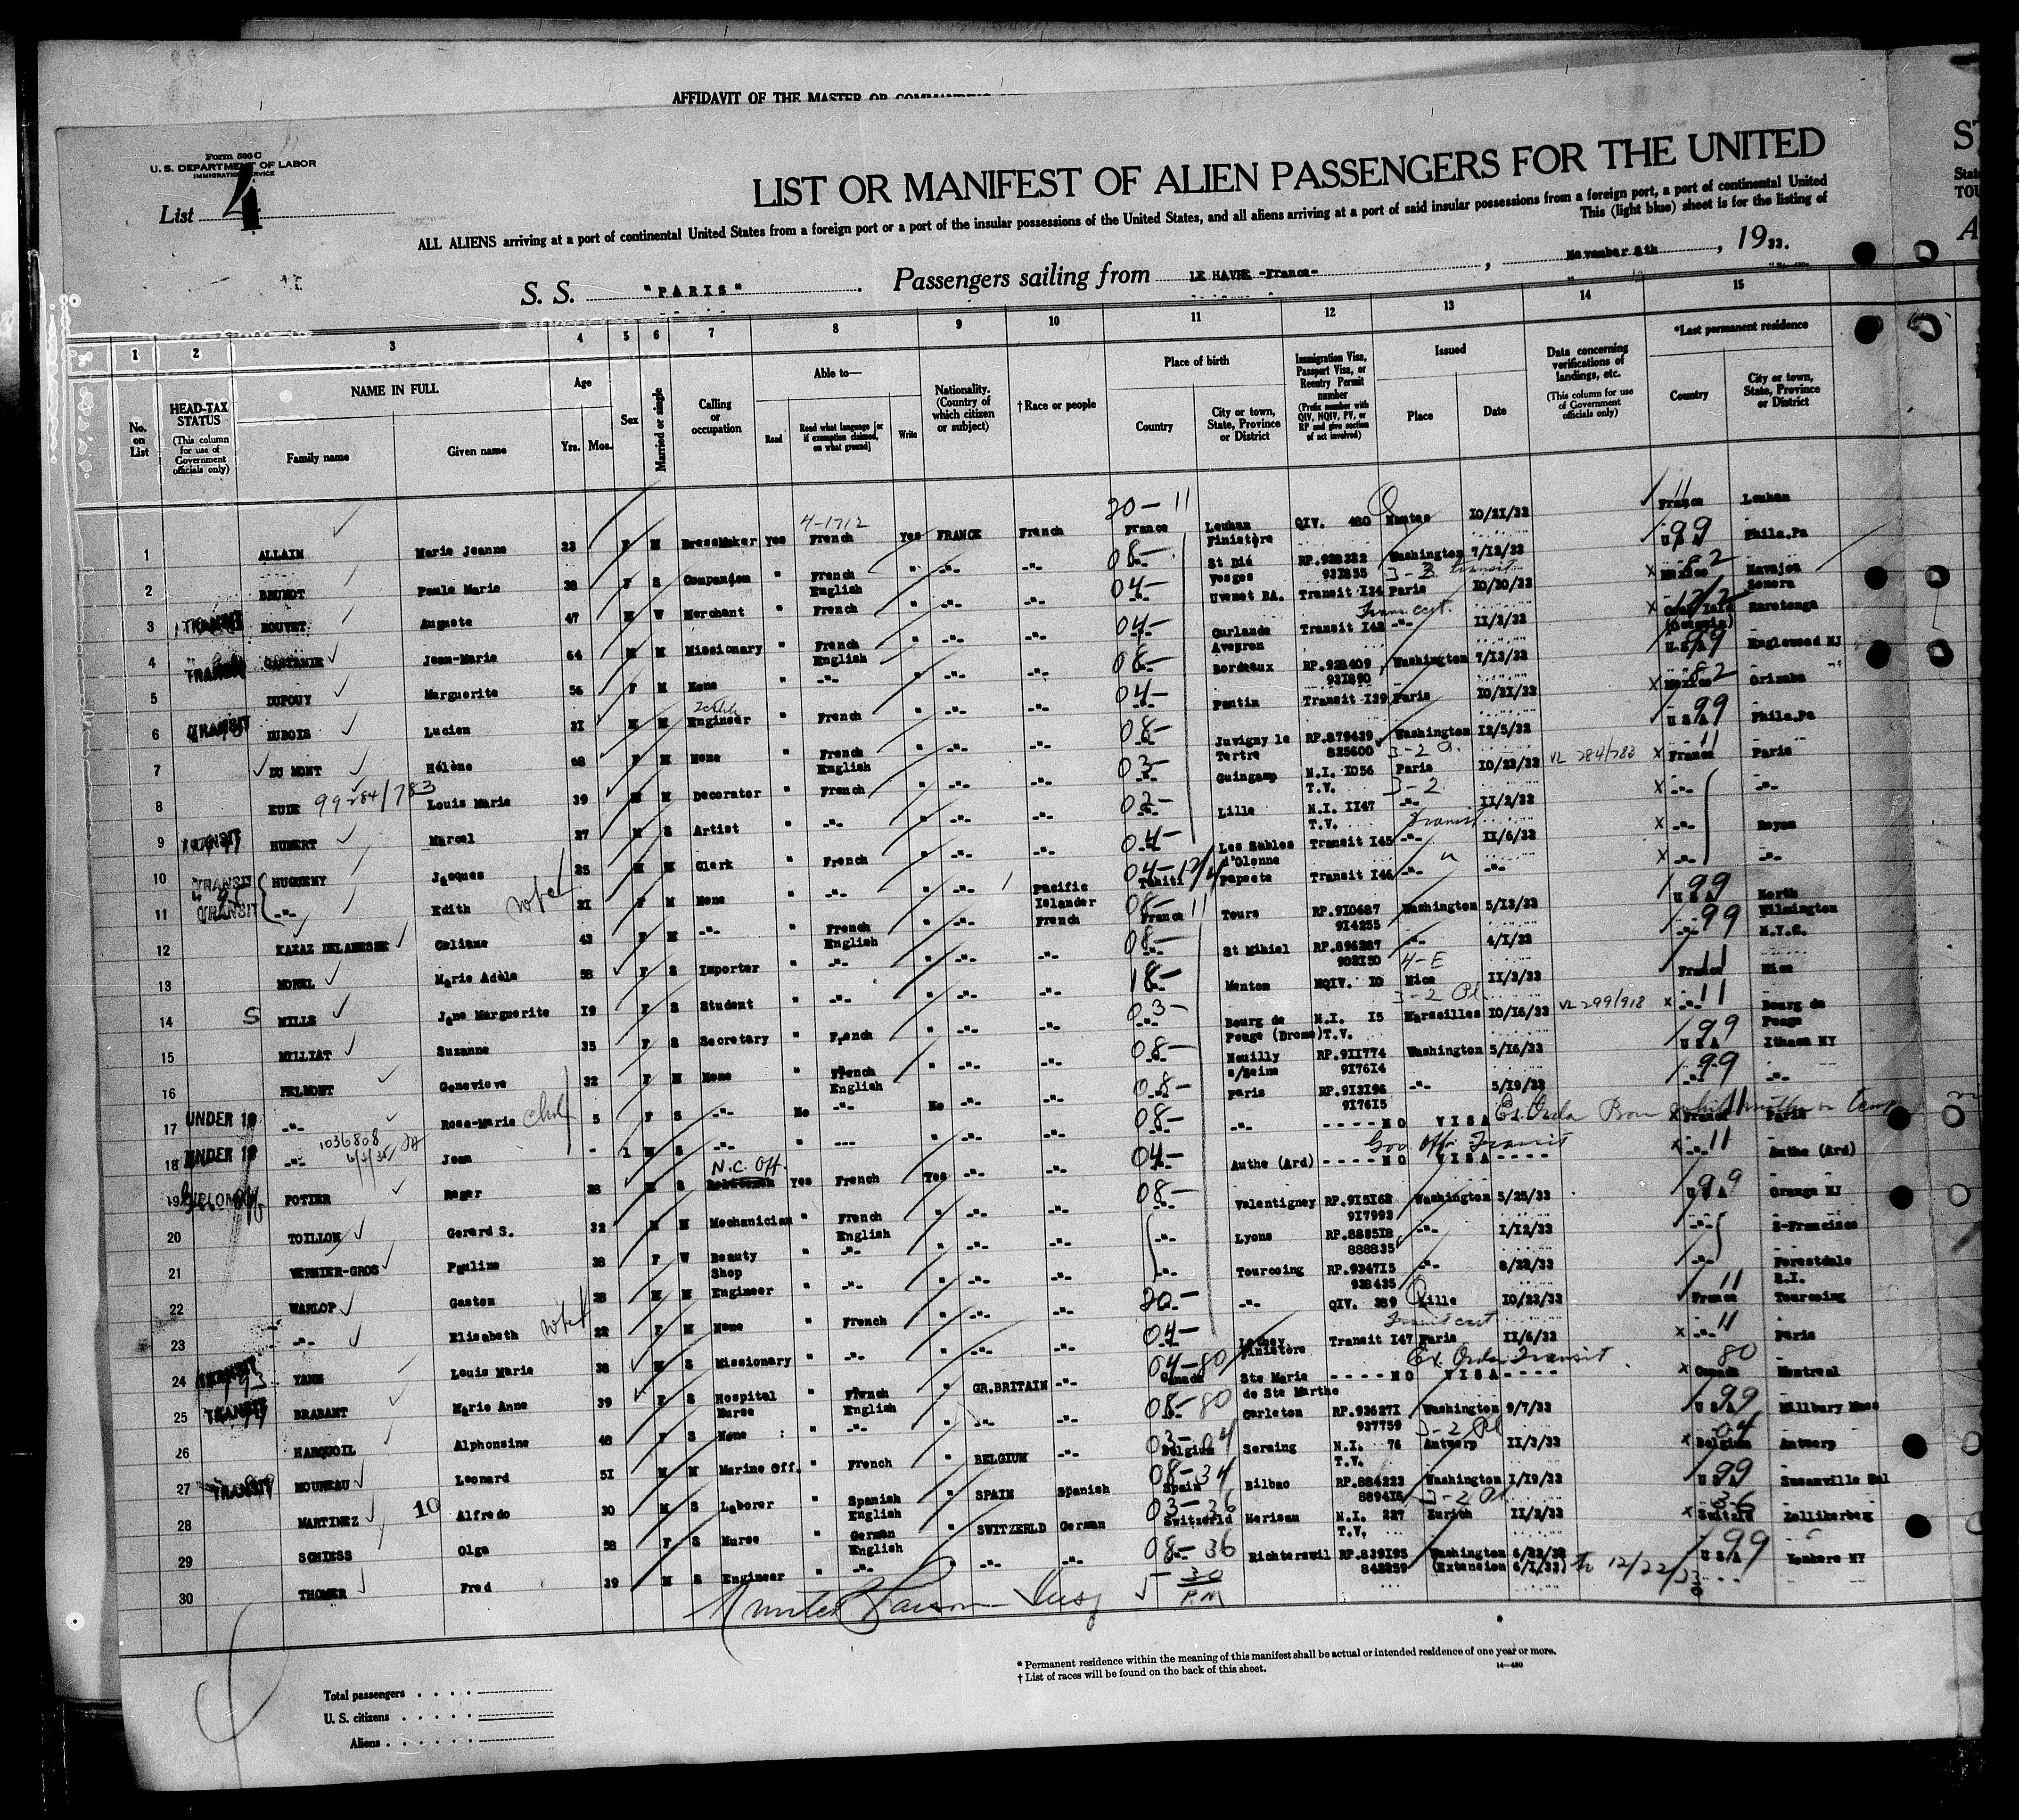 AFFIDAVIT OF THE MASTER OR
Form 500 C
U. S. DEPARTMENT OF LABOR
IMMIGRATION SERVICE
List 4
LIST OR MANIFEST OF ALIEN PASSENGERS FOR THE UNITED
ALL ALIENS arriving at a port of continental United States from a foreign port or a port of the insular possessions of the United States, and all aliens arriving at a port of said insular possessions from a foreign port, a port of continental United
This (light blue) sheet is for the listing of
S. S. "PARIS" . Passengers sailing from LE HAVRE -France- , November 8th , 1933.
1 2 3 4 5 6 7 8 9 10 11 12 13 14 15
No. on List
HEAD-TAX STATUS (This column for use of Government officials only)
NAME IN FULL Family name Given name
Age Yrs. Mos.
Sex
Married or single
Calling or occupation
Able to— Read Read what language [or if exemption claimed, on what ground] Write
Nationality. (Country of which citizen or subject)
† Race or people
Place of birth Country City or town, State, Province or District
Immigration Visa, Passport Visa, or Reentry Permit number (Prefix number with QIV, NQIV, PV, or RP and give section of act involved)
Issued Place Date
Data concerning verifications of landings, etc. (This column for use of Government officials only)
*Last permanent residence Country City or town, State, Province or District
1 ALLAIN Marie Jeanne 23 F M DressMaker Yes 4-1712 French Yes FRANCE French 20-11 France Leuhan Finistère QIV. 480 Nantes 10/21/33 France Leuhan
2 BRUNOT Paule Marie 38 F S Companion " French English " -"- -"- 08- St Dié Vosges RP.922322 931855 Washington 7/12/33 99 USA Phila.Pa
3 TRANSIT BOUVET Auguste 47 M W Merchant " French " -"- -"- 04- Transit 124 Paris 10/30/33 X Mexico 82 Navajoa Sonora
4 TRANSIT CASTANIE Jean-Marie 64 M M Missionary " French English " -"- -"- 04- Curlande Aveyron Transit 142 -"- 11/3/33 X Rarotonga
5 DUPOUY Marguerite 56 F M None " -"- " -"- -"- 08- Bordeaux RP.928409 931890 Washington 7/13/33 U.S.A 99 Englewood NJ
6 TRANSIT DUBOIS Lucien 31 M M Engineer " French " -"- -"- 04- Pantin Transit 139 Paris 10/31/33 X Mexico 82 Orizaba
7 DU MONT Hélène 68 F M None " French English " -"- -"- 08- Juvigny le Tertre RP.879439 825600 Washington 12/5/32 USA 99 Phila.Pa
8 EUDE 99 284/783 Louis Marie 39 M M Decorator " French " -"- -"- 03- Guingamp N.I. 1056 T.V. Paris 3-2 10/23/33 VL 284/783 X France 11 Paris
9 TRANSIT HUBERT Marcel 27 M S Artist " -"- " -"- -"- 02- Lille N.I. 1147 T.V. -"- 11/2/33 X -"- -"-
10 TRANSIT HUGUENY Jacques 25 M M Clerk " French " -"- -"- 04- Les Sables d'Olonne Transit 145 -"- 11/6/33 X -"- Royan
11 TRANSIT -"- Edith 21 F M None " -"- " -"- Pacific Islander 04- Tahiti Papeete Transit 146 -"- -"- X -"- -"-
12 Celiane 43 F M -"- " French English " -"- French 08- France 11 Tours RP.910687 914255 Washington 5/13/33 USA 99 North Wilmington
13 MOREL Marie Adèle 58 F S Importer " -"- " -"- -"- 08- St Mihiel RP.896287 902150 -"- 4/1/33 -"- 99 N.Y.C.
14 S MILLS Jane Marguerite 19 F S Student " -"- " -"- -"- 18- Menton NQIV. 10 Nice 4-E 11/3/33 France 11 Nice
15 MILLIAT Suzanne 35 F S Secretary " French " -"- -"- 03- Bourg de Peage (Drome) N.I. 15 T.V. Marseilles 10/16/33 VL 299/918 X -"- 11 Bourg de Peage
16 PELMONT Genevieve 32 F M None " French English " -"- -"- 08- Neuilly s/Seine RP.911774 917614 Washington 5/16/33 USA 99 Ithaca NY
17 UNDER 16 -"- Rose-Marie 5 F S -"- No -"- No -"- -"- 08- Paris RP.913196 917615 -"- 5/19/33 -"- 99 -"-
18 UNDER 16 -"- 1036808 Jean - 1 M S -"- " --- " -"- -"- 08- -"- ----NO VISA X France 11 Paris
19 POTIER Roger 28 M S N.C. Off. Yes French Yes -"- -"- 04- Authe (Ard) ----NO VISA---- Gov Off. Transit X -"- 11 Authe (Ard)
20 TOILLON Gerard S. 32 M M Mechanician " French English " -"- -"- 08- Valentigney RP.915162 917993 Washington 5/25/33 USA 99 Orange NJ
21 VERNIER-GROS Pauline 38 F W Beauty Shop " -"- " -"- -"- -"- Lyons RP.883518 888835 -"- 1/12/33 -"- S-Francisco
22 WARLOP Gaston 28 M M Engineer " -"- " -"- -"- -"- Tourcoing RP.934715 938435 -"- 8/22/33 -"- Forestdale R.I.
23 -"- Elisabeth 22 F M None " French " -"- -"- 20- -"- QIV. 289 Lille 10/23/33 France 11 Tourcoing
24 TRANSIT YANN Louis Marie 38 M S Missionary " -"- " -"- -"- 04- Finistère Transit 147 Paris 11/6/33 X -"- 11 Paris
25 TRANSIT BRABANT Marie Anne 39 F S Hospital Nurse " French English " GR.BRITAIN -"- 04-80 Canada Ste Marie de Ste Marthe ----NO VISA---- Transit X Canada 80 Montreal
26 HARQUOIL Alphonsine 48 F S None " -"- " -"- -"- 08-80 -"- Carleton RP.936271 937759 Washington 9/7/33 USA 99 Millbury Mass
27 TRANSIT MOUREAU Leonard 51 M M Marine Off. " French " BELGIUM -"- 03-04 Belgium Seraing N.I. 76 T.V. Antwerp 11/3/33 X Belgium 04 Antwerp
28 MARTINEZ 10 Alfredo 30 M S Laborer " Spanish English " SPAIN Spanish 08-34 Spain Bilbao RP.884223 889418 Washington 1/19/33 USA 99 Susanville Cal
29 SCHIESS Olga 58 F S Nurse " German English " SWITZERLD German 03-36 Switzerld Herisau N.I. 227 T.V. Zurich 11/2/33 X 36 Zollikerberg
30 THOMER Fred 39 M S Engineer " -"- " -"- -"- 08-36 -"- Richterswil RP.839195 842859 Washington 6/22/32 (Extension 6/1/33) to 12/22/33 USA 99 Yonkers NY
5 30 P.M
* Permanent residence within the meaning of this manifest shall be actual or intended residence of one year or more.
† List of races will be found on the back of this sheet.
14—430
Total passengers
U. S. citizens
Aliens